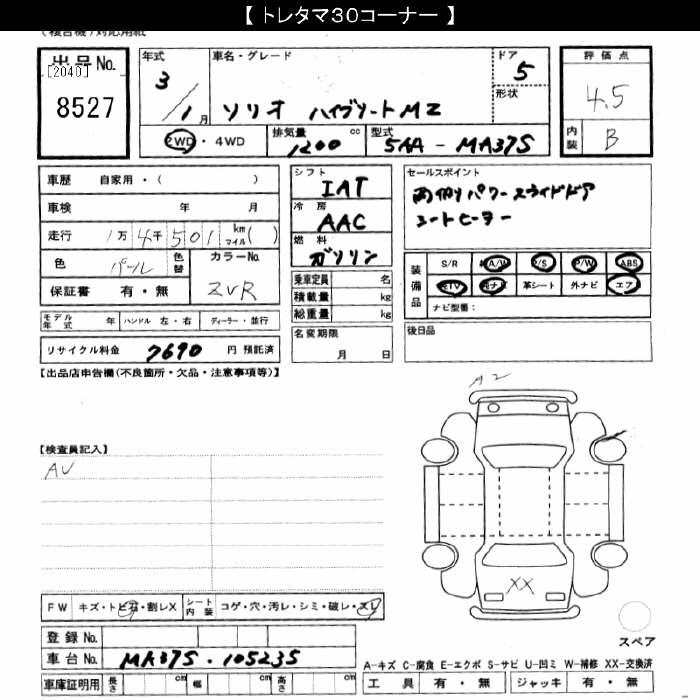 【 トレタマ３０コーナー 】
(複合機)対応用紙
出品No.
[2040]
8527
年式
3/1月
車名・グレード
ソリオ ハイブリットMZ
ドア
5
形状
評価点
4.5
内装
B
2WD・4WD
排気量
1200 cc
型式
5AA-MA37S
車歴 自家用・( )
車検 年 月
走行 1万4千501 kmマイル( )
色 パール
色替
カラーNo.
ZVR
保証書 有・無
シフト
IAT
冷房
AAC
燃料
ガソリン
乗車定員 名
積載量 kg
総重量 kg
セールスポイント
両側パワースライドドア
シートヒーター
装備品
S/R A/W P/S P/W ABS
TV ナビ 革シート 外ナビ エア
ナビ型番：
モデル年式 年 ハンドル 左・右 ディーラー・並行
名変期限
月 日
後日品
リサイクル料金 7690 円 預託済
【出品店申告欄(不良箇所・欠品・注意事項等)】
A2
【検査員記入】
AU
XX
FW キズ・トビ石・割レX
シート内装 コゲ・穴・汚レ・シミ・破レ・スレ
登録 No.
車台 No. MA37S-105235
車庫証明用 長さ cm 幅 cm 高さ cm
スペア
A-キズ C-腐食 E-エクボ S-サビ U-凹ミ W-補修 XX-交換済
工具 有・無 ジャッキ 有・無